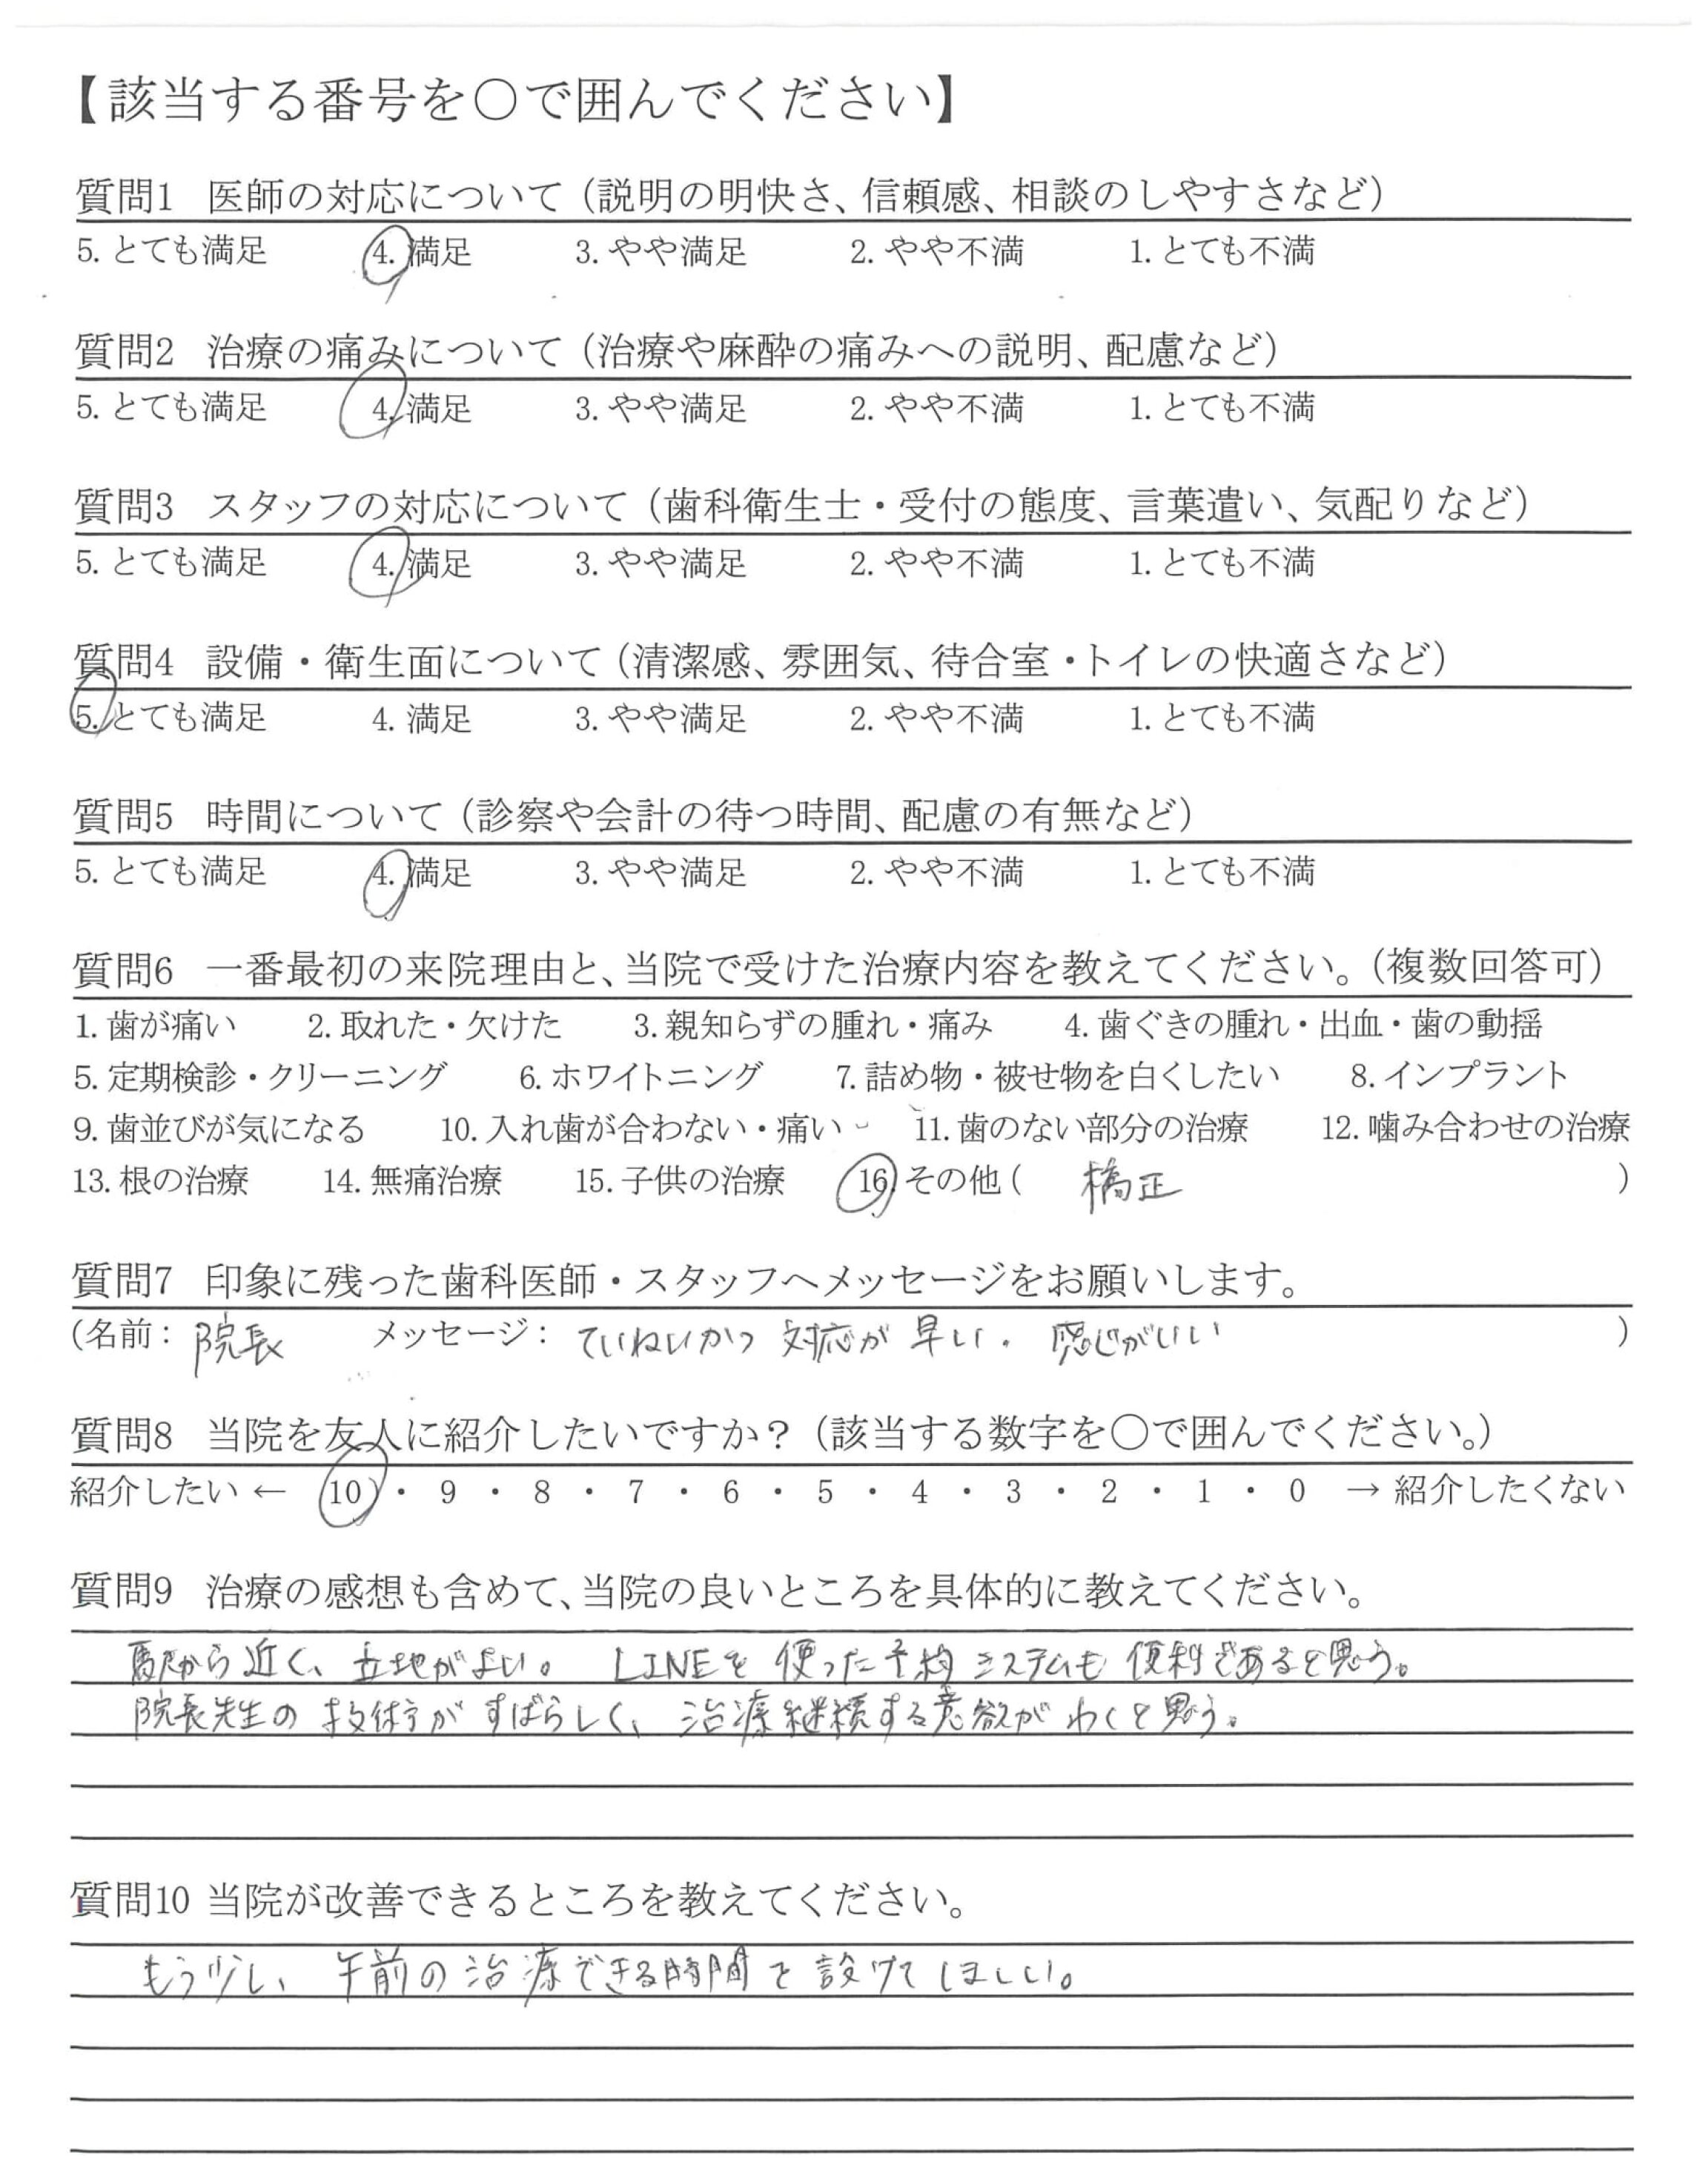 【該当する番号を〇で囲んでください】
質問1 医師の対応について（説明の明快さ、信頼感、相談のしやすさなど）
5. とても満足 4. 満足 3. やや満足 2. やや不満 1. とても不満
質問2 治療の痛みについて（治療や麻酔の痛みへの説明、配慮など）
5. とても満足 4. 満足 3. やや満足 2. やや不満 1. とても不満
質問3 スタッフの対応について（歯科衛生士・受付の態度、言葉遣い、気配りなど）
5. とても満足 4. 満足 3. やや満足 2. やや不満 1. とても不満
質問4 設備・衛生面について（清潔感、雰囲気、待合室・トイレの快適さなど）
5. とても満足 4. 満足 3. やや満足 2. やや不満 1. とても不満
質問5 時間について（診察や会計の待つ時間、配慮の有無など）
5. とても満足 4. 満足 3. やや満足 2. やや不満 1. とても不満
質問6 一番最初の来院理由と、当院で受けた治療内容を教えてください。（複数回答可）
1. 歯が痛い 2. 取れた・欠けた 3. 親知らずの腫れ・痛み 4. 歯ぐきの腫れ・出血・歯の動揺
5. 定期検診・クリーニング 6. ホワイトニング 7. 詰め物・被せ物を白くしたい 8. インプラント
9. 歯並びが気になる 10. 入れ歯が合わない・痛い 11. 歯のない部分の治療 12. 噛み合わせの治療
13. 根の治療 14. 無痛治療 15. 子供の治療 16. その他（ 橋正 ）
質問7 印象に残った歯科医師・スタッフへメッセージをお願いします。
（名前： 院長 メッセージ： ていねいかつ 対応が 早い。 感じがいい ）
質問8 当院を友人に紹介したいですか？（該当する数字を〇で囲んでください。）
紹介したい ← 10 ・ 9 ・ 8 ・ 7 ・ 6 ・ 5 ・ 4 ・ 3 ・ 2 ・ 1 ・ 0 → 紹介したくない
質問9 治療の感想も含めて、当院の良いところを具体的に教えてください。
駅から近く、立地がよい。 LINEを使った予約システムも便利であると思う。
院長先生の がすばらしく、治療継続する意欲がわくと思う。
質問10 当院が改善できるところを教えてください。
もう少し、午前の治療できる時間を設けてほしい。